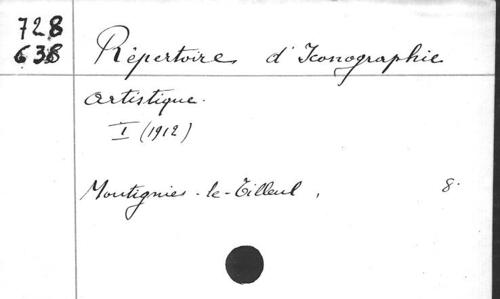 728
638
Répertoire d'Iconographie
artistique.
I (1912)
Montignies-le-Tilleul, 8.